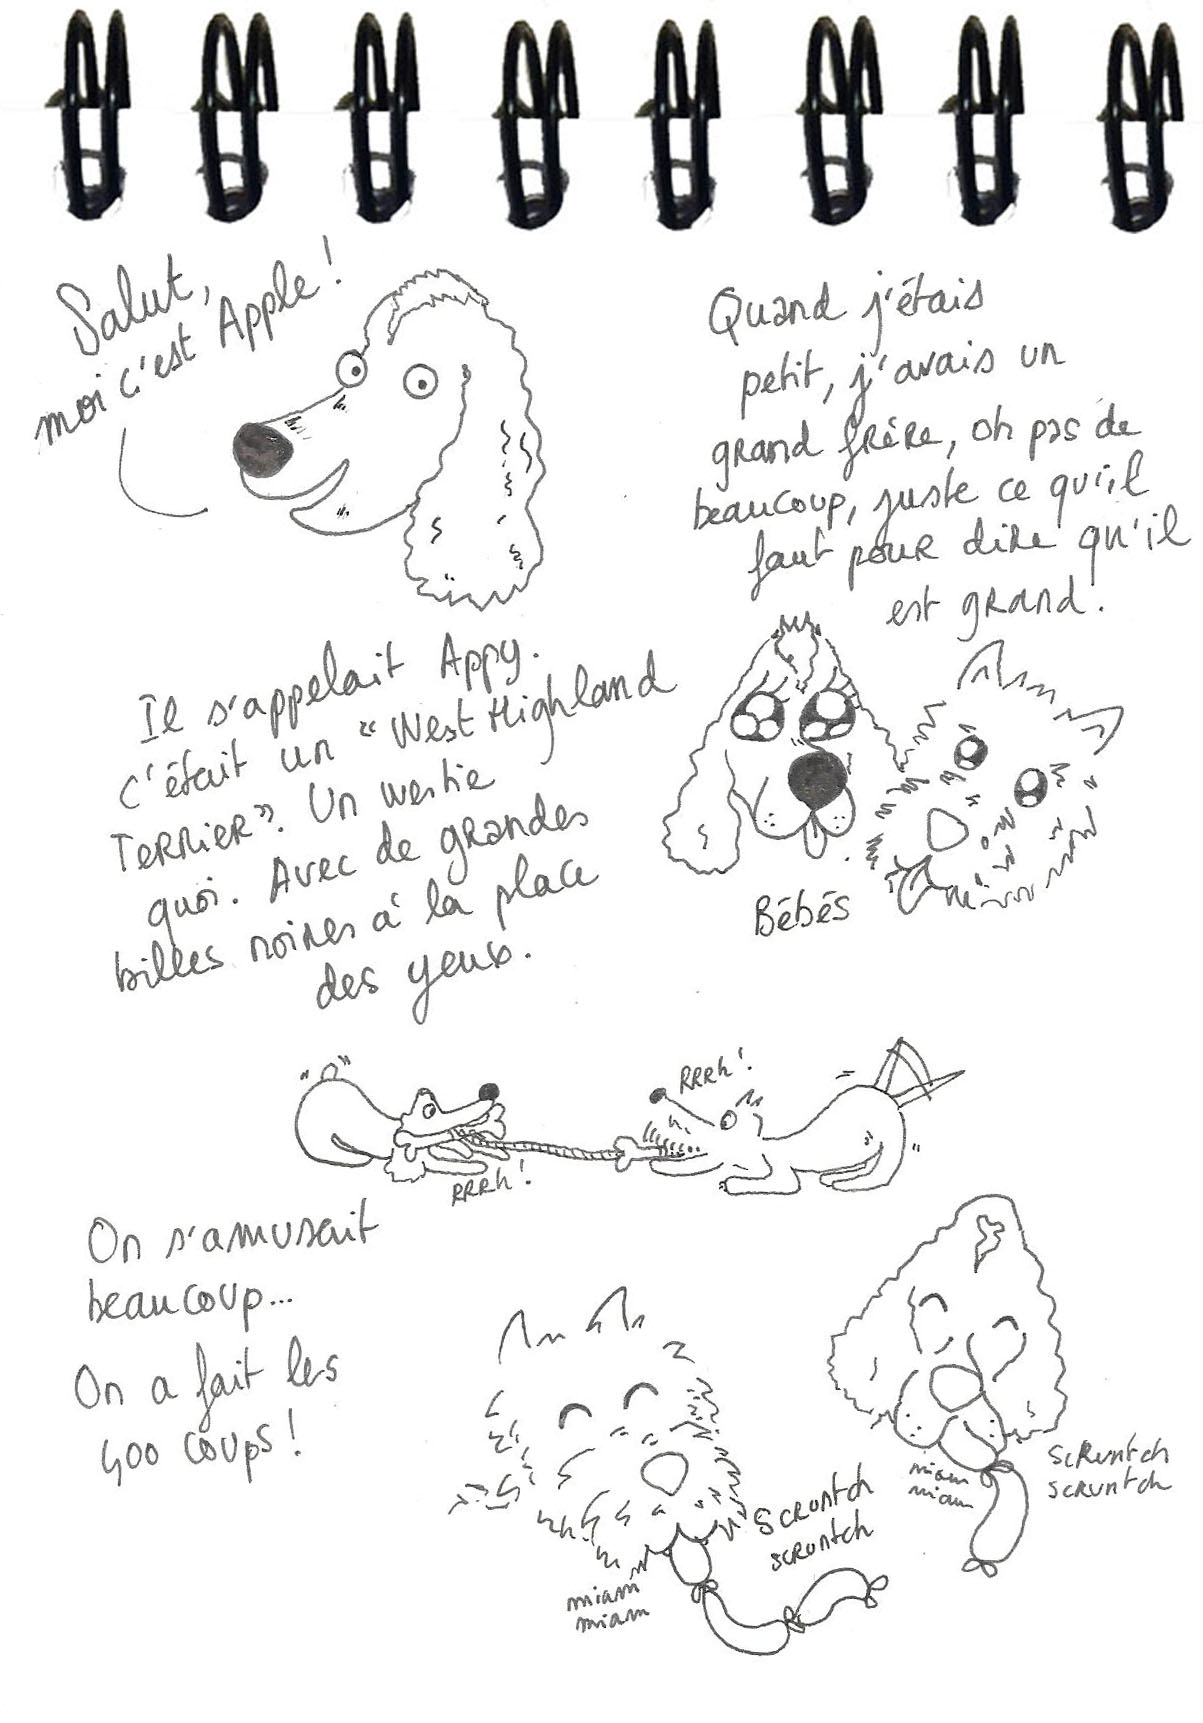 Salut,
moi c'est Apple!
Quand j'étais
petit, j'avais un
grand frère, oh pas de
beaucoup, juste ce qu'il
faut pour dire qu'il
est grand.
Il s'appelait Appy.
c'était un "West Highland
Terrier". Un westie
quoi. Avec de grandes
billes noires à la place
des yeux.
Bébés
RRRh!
RRRh!
On s'amusait
beaucoup...
On a fait les
400 coups!
scruntch
scruntch
miam
miam
scruntch
scruntch
miam
miam